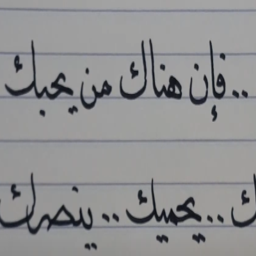 ..فإن هناك من يحبك
ك..يحميك..ينصرك